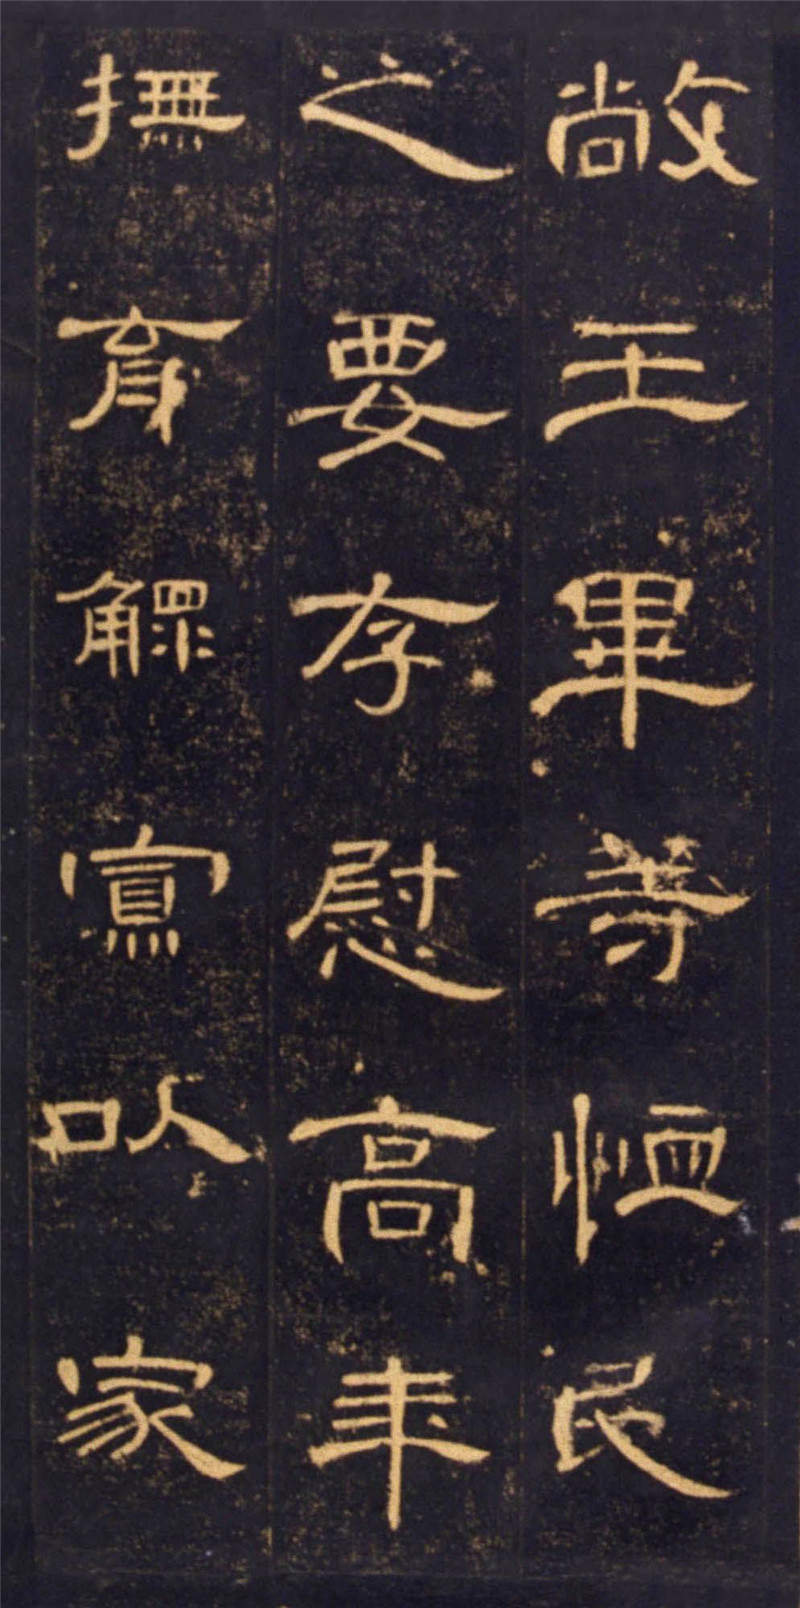 敞王畢等恤民
之要存慰高年
撫育鰥寡以家